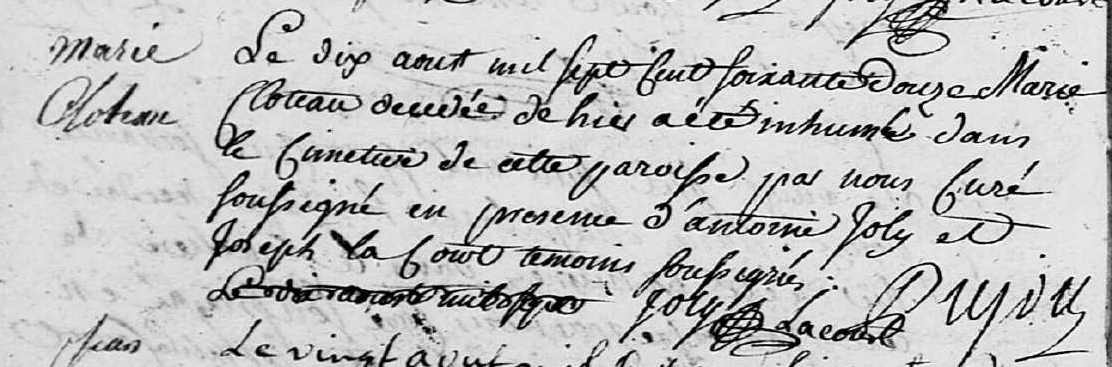 Marie
Cloteau
Le dix aout mil sept cent soixante Douze Marie
Cloteau decedée de hier a été inhumé dans
le cimetiere de cette paroisse par nous Curé
soussigné en presence d'antoine Joly et
Joseph la Court temoins soussignés.
Joly Lacourt
Jean
Le vingt aout